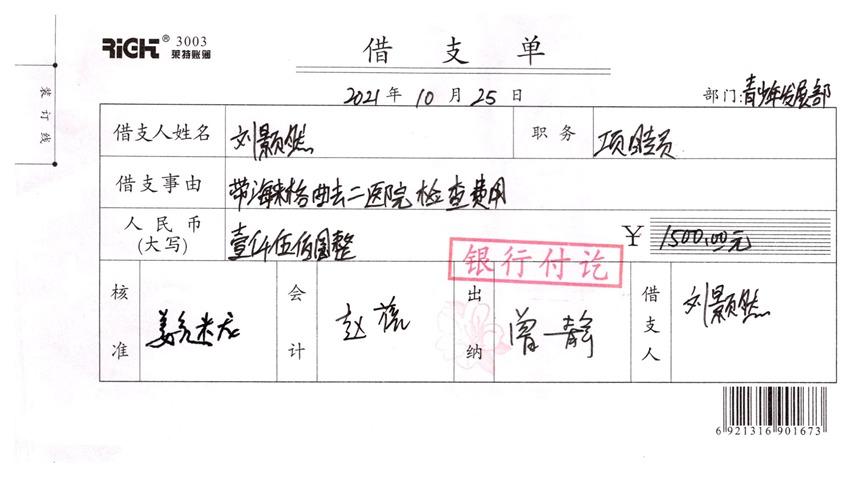 RiGHT® 3003
莱特账簿
借支单
2021年10月25日 部门:青少年发展部
装订线
借支人姓名 刘颢然 职务 项目专员
借支事由 带海来格曲去二医院检查费用
人民币(大写) 壹仟伍佰圆整 ¥ 1500.00元
银行付讫
核准 会计 赵蓓 出纳 曾静 借支人 刘颢然
6 921316 901673